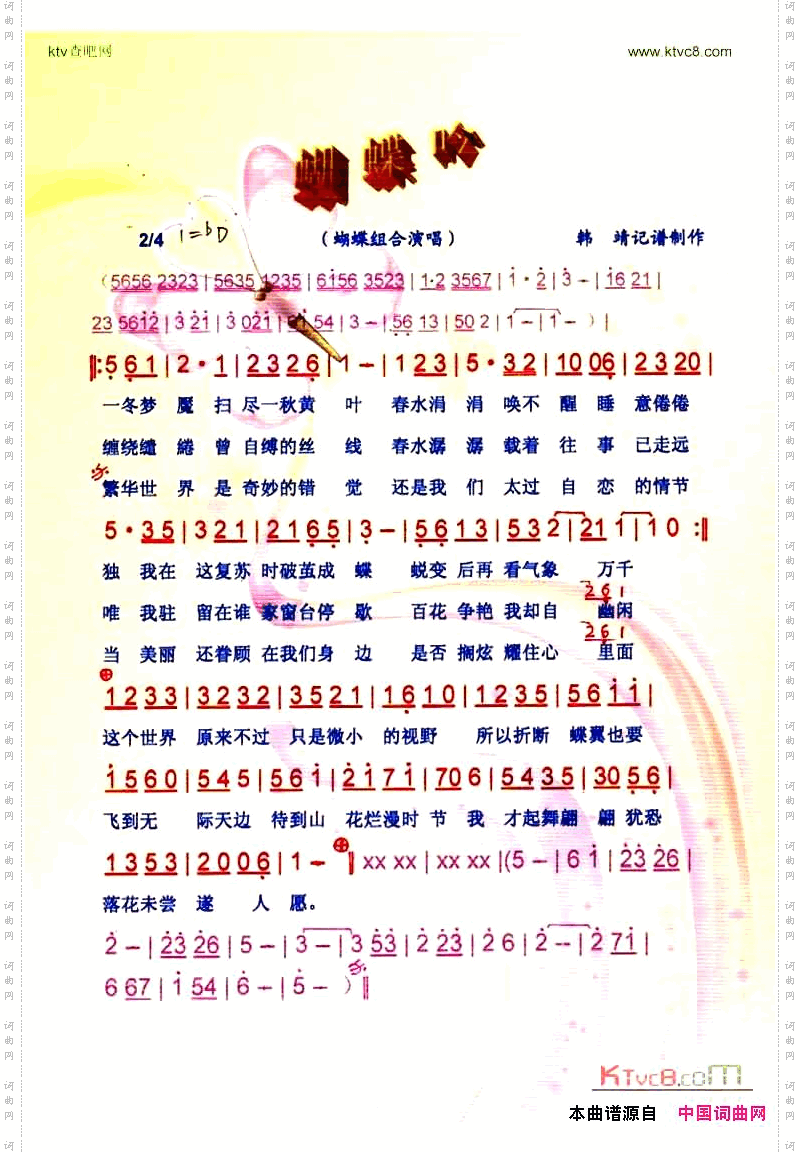 ktv查吧网 www.ktvc8.com
蝴蝶吟
2/4 1=bD （蝴蝶组合演唱） 韩 靖记谱制作
（5656 2323 | 5635 1235 | 6156 3523 | 1·2 3567 | 1 · 2 | 3 – | 16 21 |
23 5612 | 3 21 | 3 021 | 61 54 | 3 – | 56 13 | 50 2 | 1 – | 1 – ）|
‖: 5 61 | 2 · 1 | 23 26 | 1 – | 1 23 | 5 · 32 | 10 06 | 23 20 |
一冬梦 魇 扫 尽一秋黄 叶 春水涓 涓 唤不 醒 睡 意倦倦
缠绕缱 绻 曾 自缚的丝 线 春水潺 潺 载着 往 事 已走远
繁华世 界 是 奇妙的错 觉 还是我 们 太过 自 恋 的情节
5 · 35 | 3 21 | 21 65 | 3 – | 56 13 | 53 2 | 21 1 | 1 0 :‖
独 我在 这复苏 时破茧成 蝶 蜕变 后再 看气象 万千
261
唯 我驻 留在谁 家窗台停 歇 百花 争艳 我却自 幽闲
261
当 美丽 还眷顾 在我们身 边 是否 搁炫 耀住心 里面
12 33 | 32 32 | 35 21 | 16 10 | 12 35 | 56 11 |
这个世界 原来不过 只是微小 的视野 所以折断 蝶翼也要
15 60 | 54 5 | 56 1 | 21 71 | 70 6 | 54 35 | 30 56 |
飞到无 际天边 待到山 花烂漫时 节 我 才起舞翩 翩 犹恐
13 53 | 20 06 | 1 – ‖ xx xx | xx xx |（5 – | 6 1 | 23 26 |
落花未尝 遂 人 愿。
2 – | 23 26 | 5 – | 3 – | 3 53 | 2 23 | 2 6 | 2 – | 2 71 |
6 67 | 1 54 | 6 – | 5 – ）‖
KTvc8.com
本曲谱源自 中国词曲网
词曲网